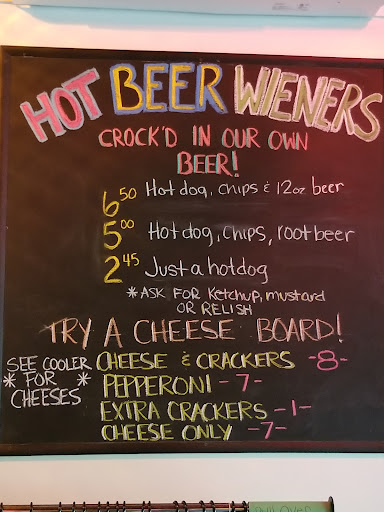 HOT BEER WIENERS
CROCK'D IN OUR OWN
BEER!
6.50 Hotdog, chips & 12oz beer
5.00 Hotdog, chips, rootbeer
2.45 Just a hotdog
*ASK FOR Ketchup, mustard
OR RELISH
TRY A CHEESE BOARD!
SEE COOLER
* FOR *
CHEESES
CHEESE & CRACKERS -8-
PEPPERONI -7-
EXTRA CRACKERS -1-
CHEESE ONLY -7-